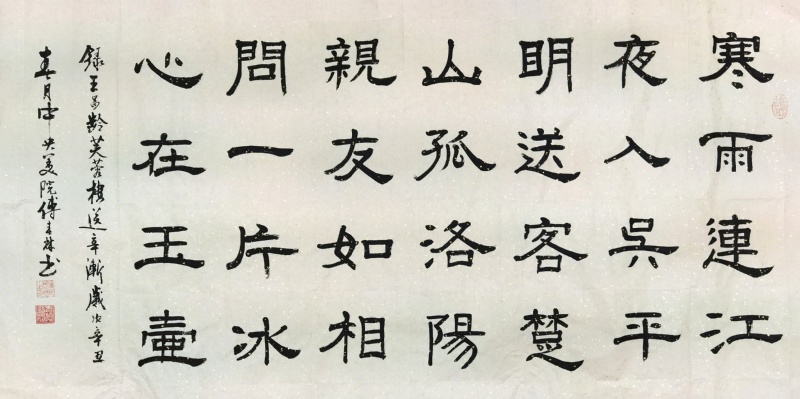 寒雨連江
夜入吳平
明送客楚
山孤洛陽
親友如相
問一片冰
心在玉壷
錄王昌齡芙蓉樓送辛漸歲次辛丑
春月中央美院傅書林书